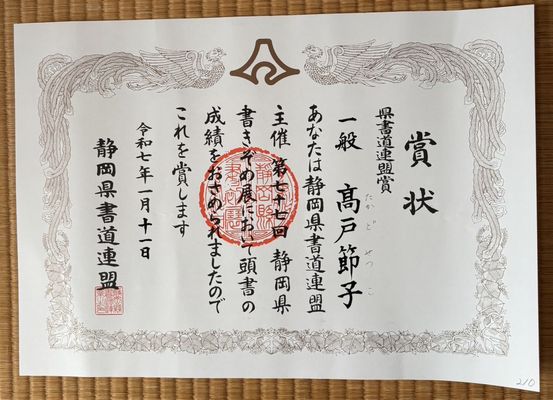 賞状
県書道連盟賞
一般 髙戸節子
たかど せつこ
あなたは静岡県書道連盟
主催 第七十七回 静岡県
書きぞめ展において頭書の
成績をおさめられましたので
これを賞します
令和七年一月十一日
静岡県書道連盟
210